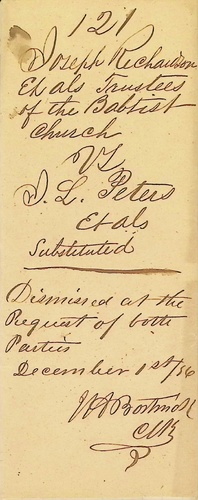 121
Joseph Richardson
Et als Trustees
of the Babtist
Church
VS
J. L. Peters
Et als
Substituted
Dismissed at the
Request of both
Parties
December 1st/56
Clk